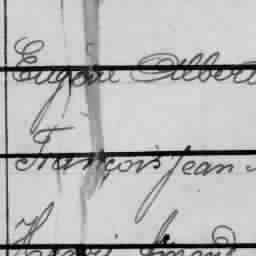 Eugène Albert
François Jean
Henri